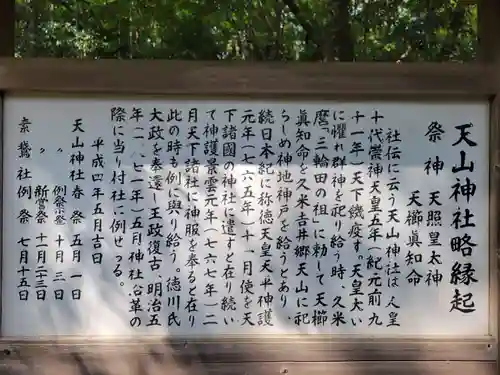 天山神社略縁起
祭神 天照皇太神
天櫛眞知命
社伝に云う天山神社は人皇
十代崇神天皇五年(紀元前九
十一年)天下饑疫す。天皇大い
に懼れ群神を祀り給う時、久米
麿「三輪田の祖」に勅して天櫛
眞知命を久米吉井郷天山に祀
らしめ神地神戸を給うとあり、
続日本紀に称徳天皇天平神護
元年(七六五年)十一月使を天
下諸國の神社に遣すと在り続い
て神護景雲元年(七六七年)二
月天下諸社に神服を奉ると在り
此の時も例に與り給う。徳川氏
大政を奉還し王政復古、明治五
年(一八七二年)五月神社合革の
際に当り村社に例せらる。
平成四年五月吉日
天山神社春祭 五月一日
〃 例祭宗祭 十月三日
〃 新嘗祭 十一月二十三日
素鵞社例祭 七月十五日